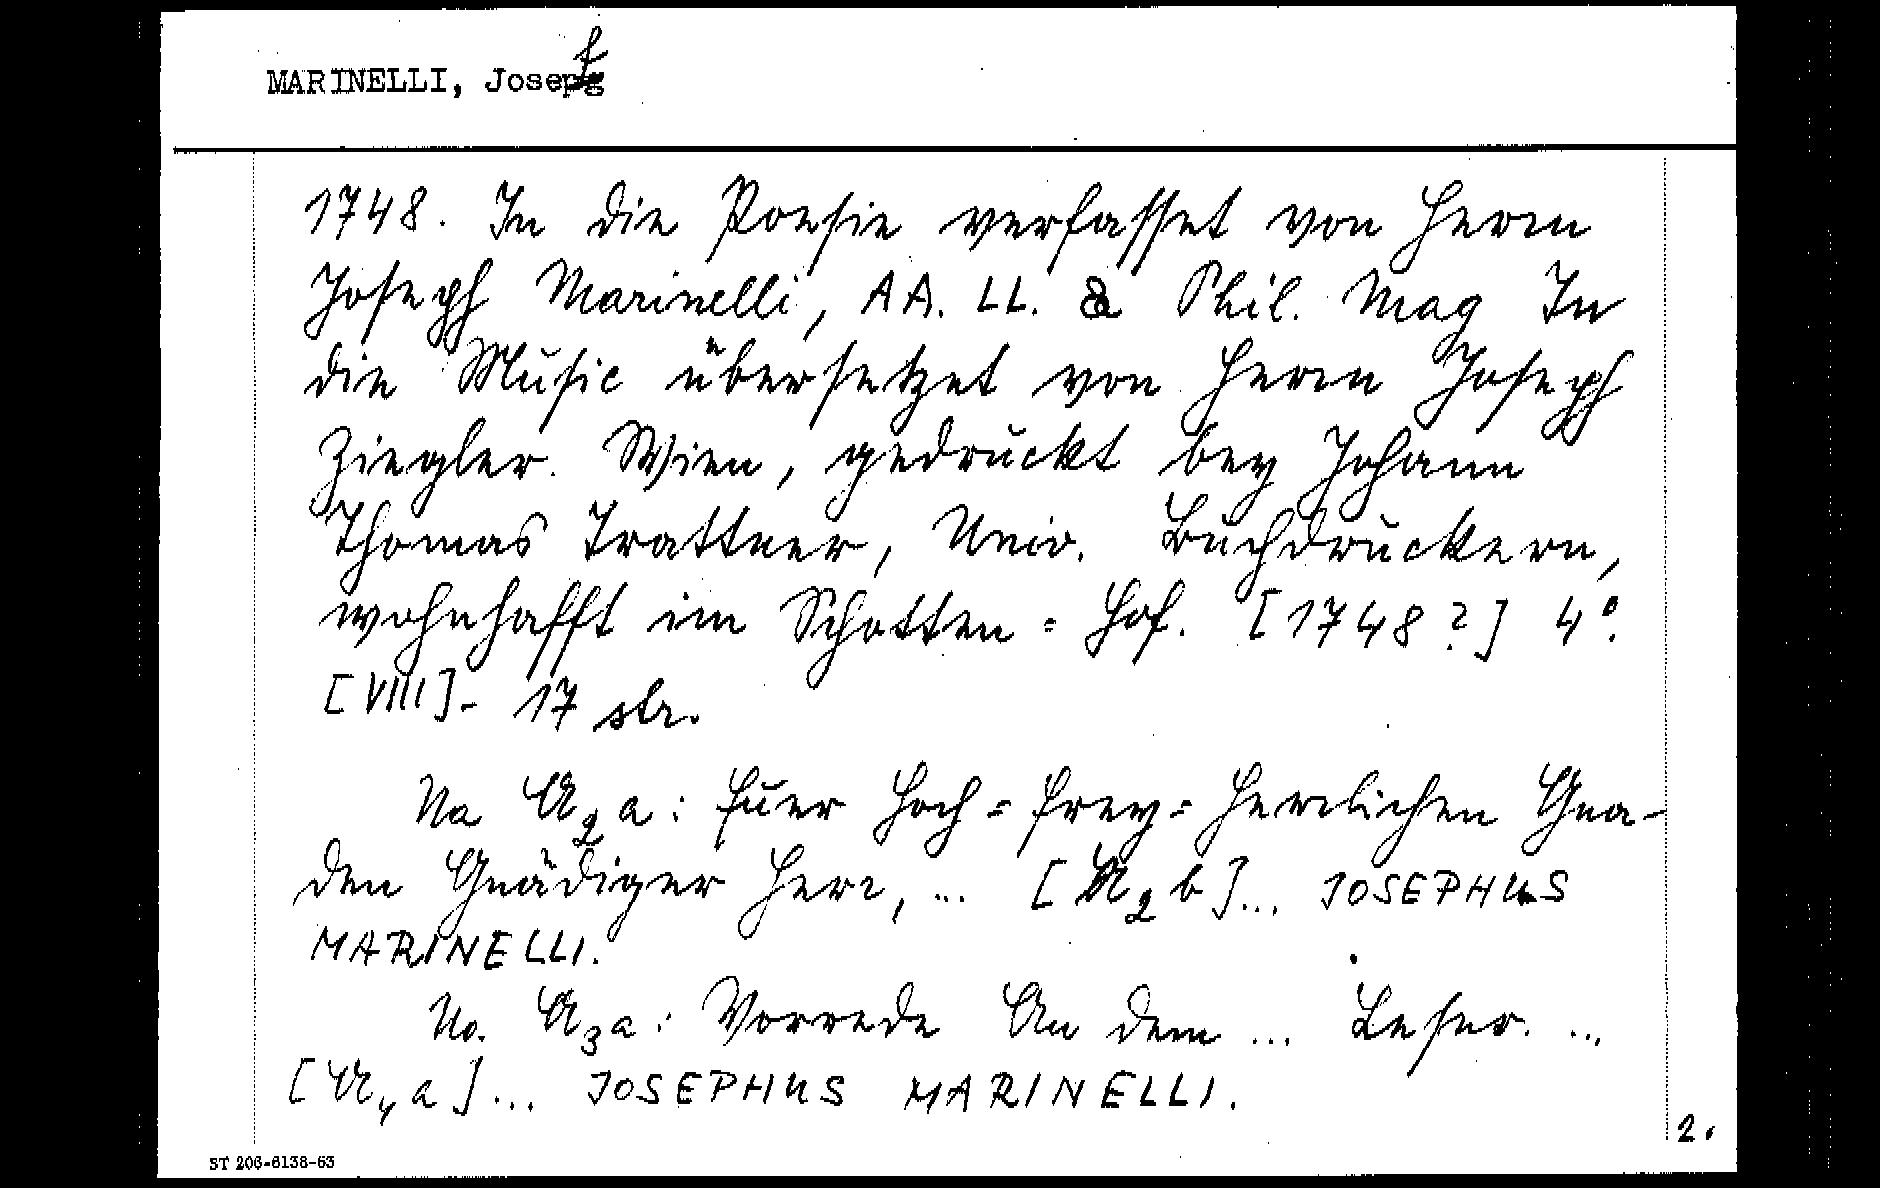 MARINELLI, Joseph
1748. In die Poesie verfasset von Herrn
Joseph Marinelli, AA. LL. & Phil. Mag In
die Music übersetzet von Herrn Joseph
Ziegler. Wien, gedruckt bey Johann
Thomas Trattner, Univ. Buchdruckern,
wohnhafft im Schotten = Hof. [1748?] 4°.
[VIII]- 17 str.
Na A2a: Euer Hoch = Frey = Herrlichen Gna-
den Gnädiger Herr, ... [A2b]... JOSEPHUS
MARINELLI.
Na A3a: Vorrede An dem ... Leser. ...
[A4a]... JOSEPHUS MARINELLI.
2.
ST 206-6138-63